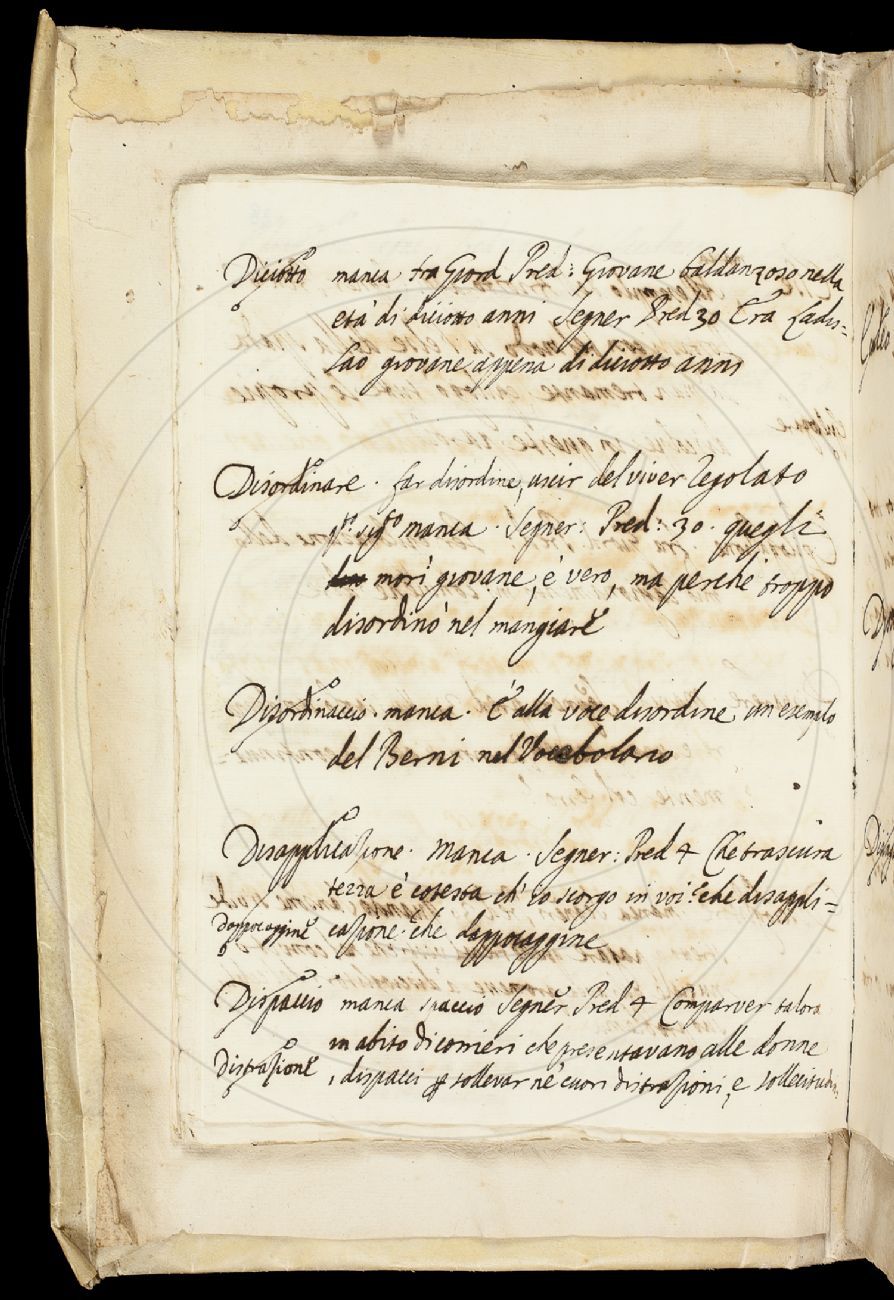 Diciotto manca fra Giord Pred: Giovane baldanzoso nella
età di diciotto anni Segner Pred 30 Era Ladis=
lao giovane appena di diciotto anni
Disordinare · far disordine, uscir del viver regolato
q.to sig.to manca · Segner: Pred: 30 · quegli
morì giovane, è vero, ma perchè troppo
disordinò nel mangiare
Disordinaccio · manca · È alla voce disordine un esempio
del Berni nel Vocabolario
Disapplicazione · manca · Segner: Pred 4 Che trascura
tezza è cotesta ch' io scorgo in voi? che disappli=
dappocaggine cazione · che dappocaggine
Dispaccio manca spaccio Segner Pred 4 Comparver talora
in abito di corrieri che presentavano alle donne
Distrazione dispacci p sollevar ne' cuori distrazioni, e